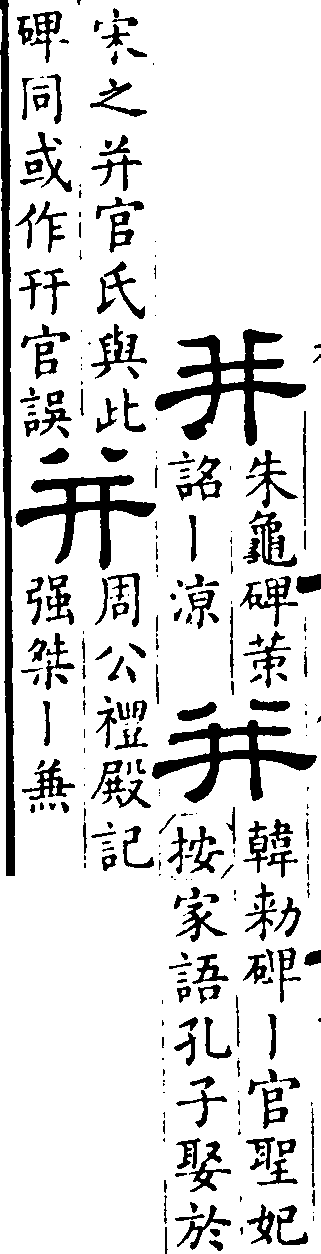 并
朱龜碑策
詔丨涼
并
韓勑碑丨官聖妃
按家語孔子娶於
宋之并官氏與此
碑同或作幵官誤
并
周公禮殿記
强桀丨兼